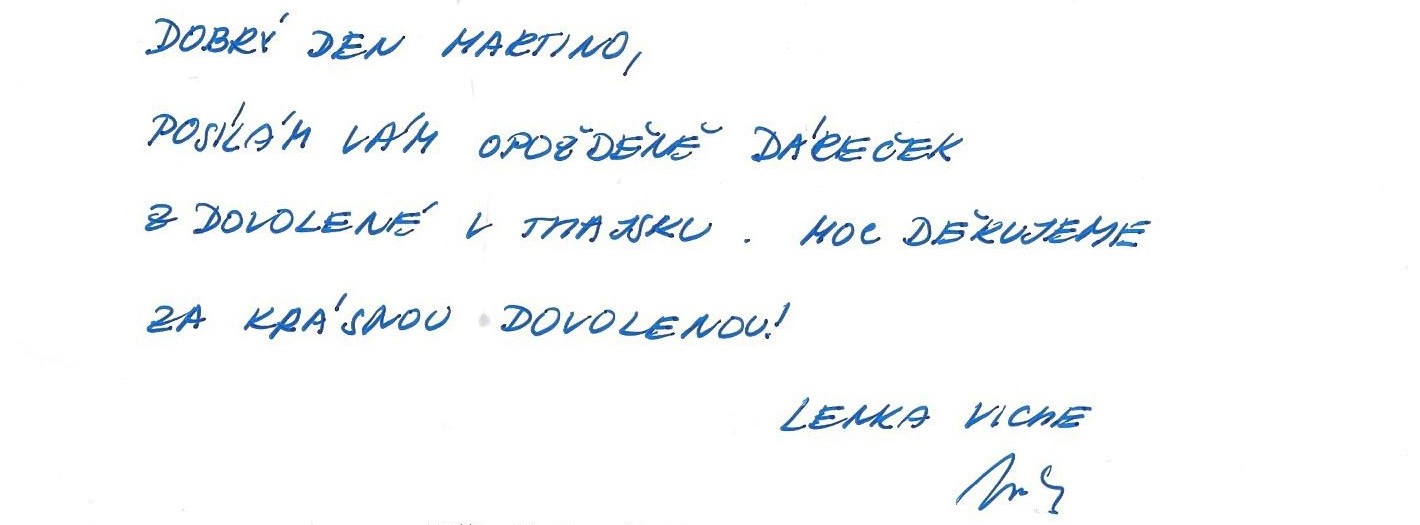 DOBRÝ DEN MARTINO,
POSÍLÁM VÁM OPOŽDĚNĚ DÁREČEK
Z DOVOLENÉ V THAJSKU. MOC DĚKUJEME
ZA KRÁSNOU DOVOLENOU!
LENKA